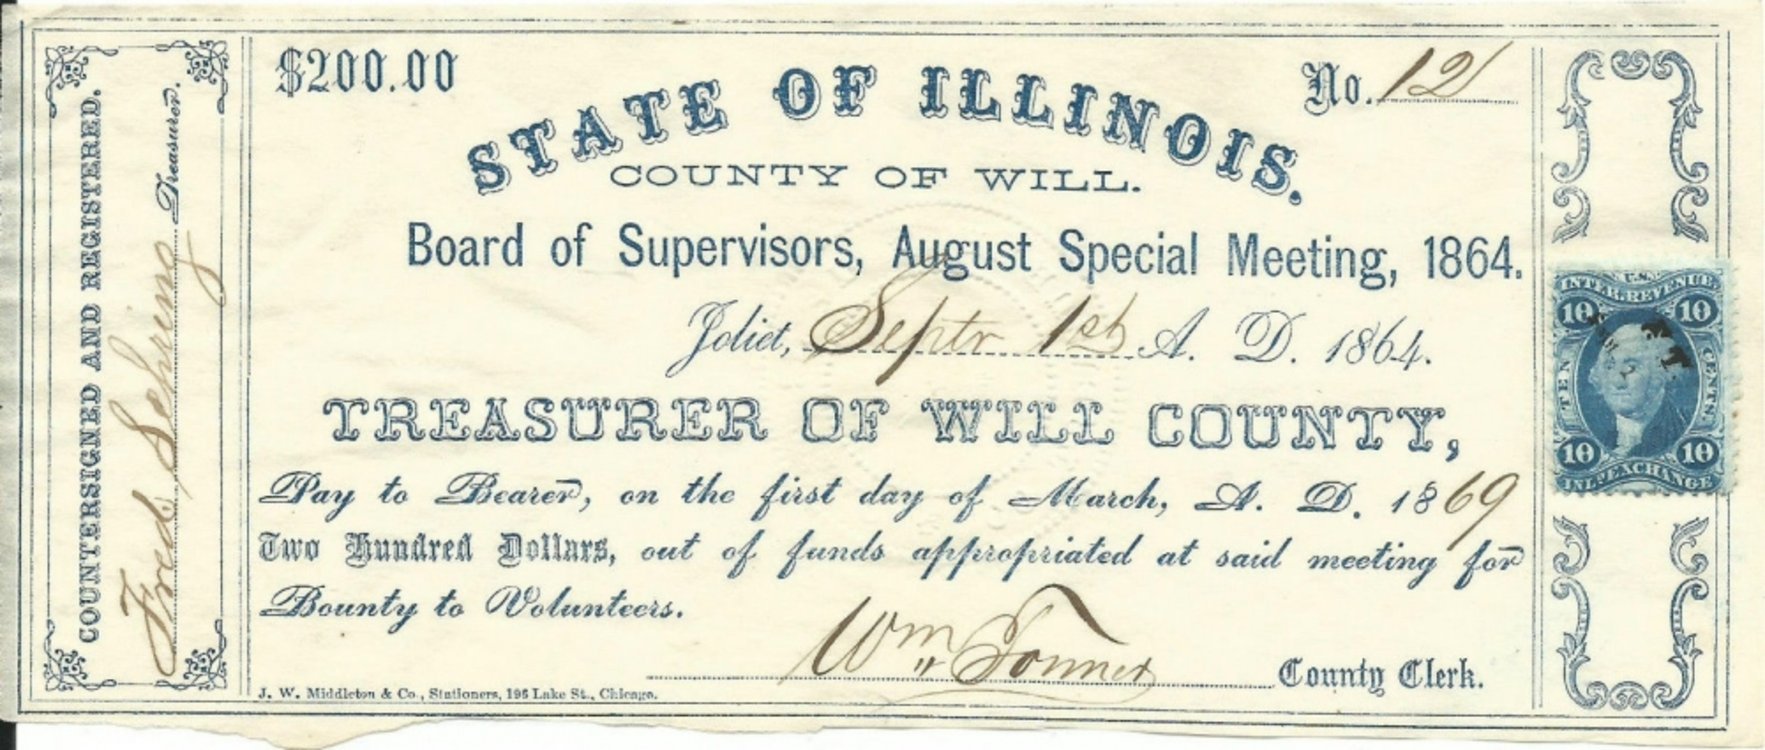 $200.00
No. 121
STATE OF ILLINOIS.
COUNTY OF WILL.
Board of Supervisors, August Special Meeting, 1864.
Joliet, Septr 1st A. D. 1864.
TREASURER OF WILL COUNTY,
Pay to Bearer, on the first day of March, A. D. 1869
Two Hundred Dollars, out of funds appropriated at said meeting for
Bounty to Volunteers.
Wm Tonner County Clerk.
J. W. Middleton & Co., Stationers, 196 Lake St., Chicago.
COUNTERSIGNED AND REGISTERED.
Fred Sehring Treasurer.
U.S.
INTER. REVENUE
10 10
TEN CENTS
10 10
INL. EXCHANGE